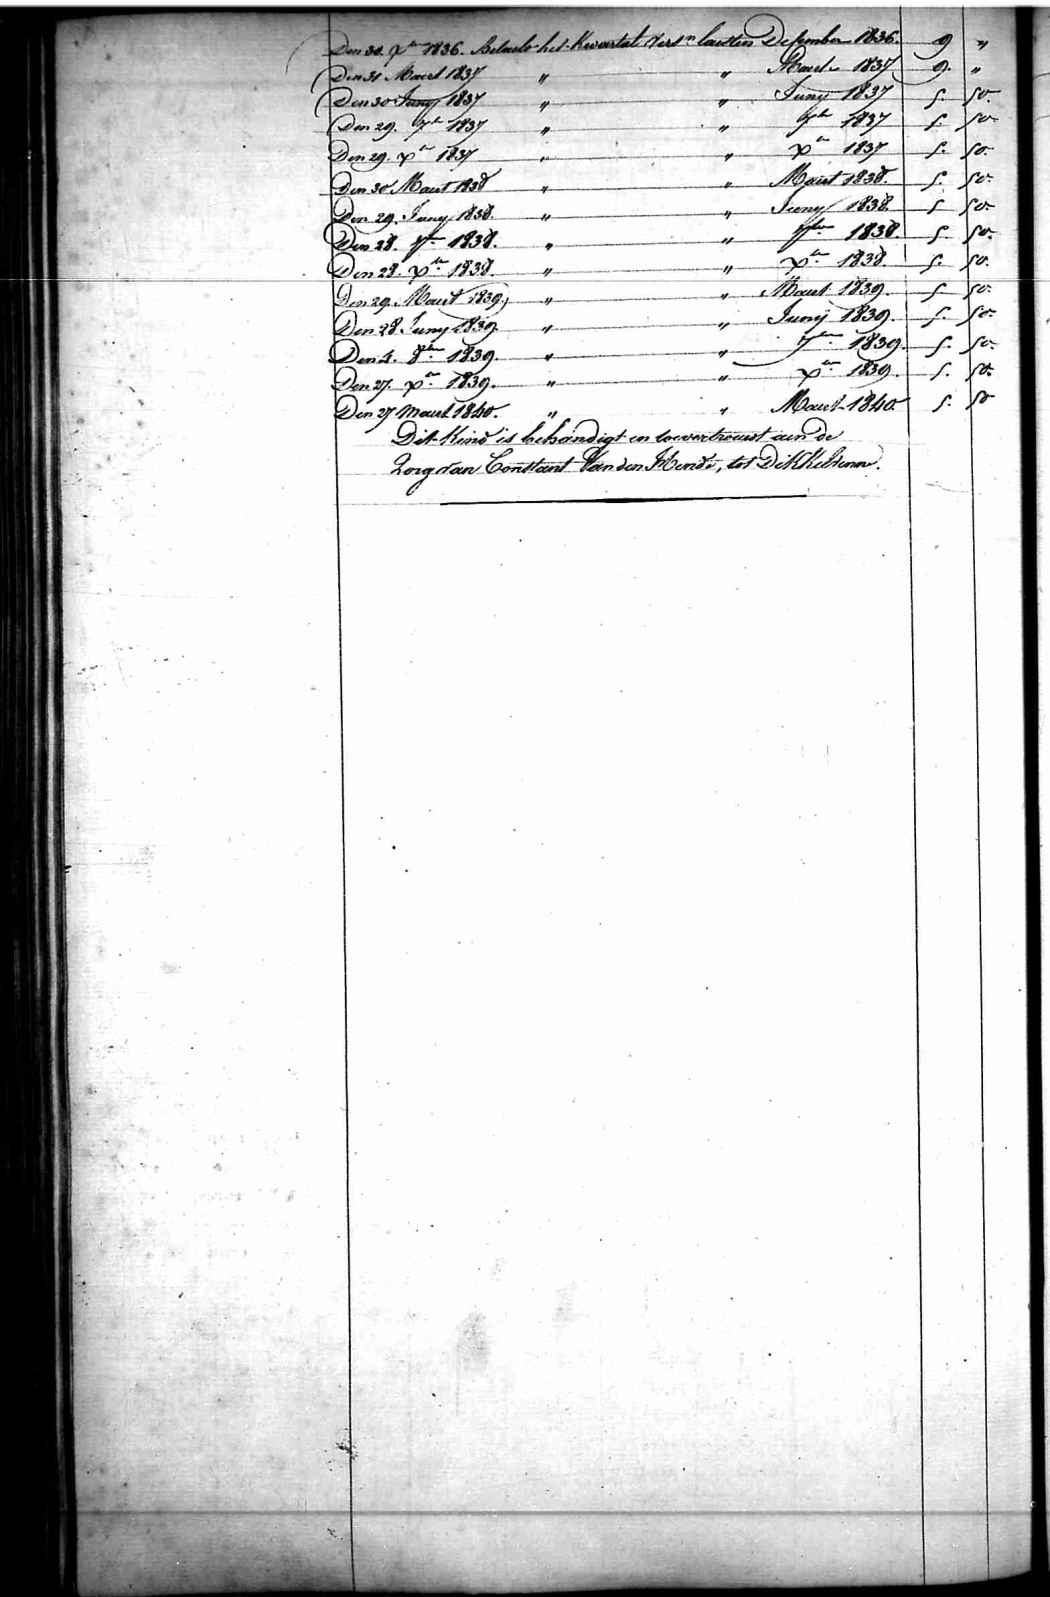 Den 30. xbr 1836. Betaelt het Kwartal vers.n laesten December 1836. 9 "
Den 31 Maert 1837 " " Maert 1837 9. "
Den 30 Juny 1837 " " Juny 1837 5. 50.
Den 29. 7br 1837 " " 7br 1837 5. 50
Den 29. xbr 1837 " " xbr 1837 5. 50.
Den 30 Maert 1838 " " Maert 1838. 5. 50.
Den 29. Juny 1838. " " Juny 1838. 5 50.
Den 28. 7bre 1838. " " 7bre 1838 5. 50.
Den 28. xbre 1838. " " xbre 1838. 5. 50.
Den 29. Maert 1839 " " Maert 1839. 5 50.
Den 28 Juny 1839 " " Juny 1839. 5. 50.
Den 4. 8bre 1839. " " 7bre 1839. 5. 50.
Den 27. xbre 1839. " " xbre 1839. 5. 50.
Den 27 Maert 1840. " " Maert 1840. 5. 50
Dit Kind is behandigt en toevertrouwt aen de
Zorg van Constant Van den Hende, tot Dikkelvenne.